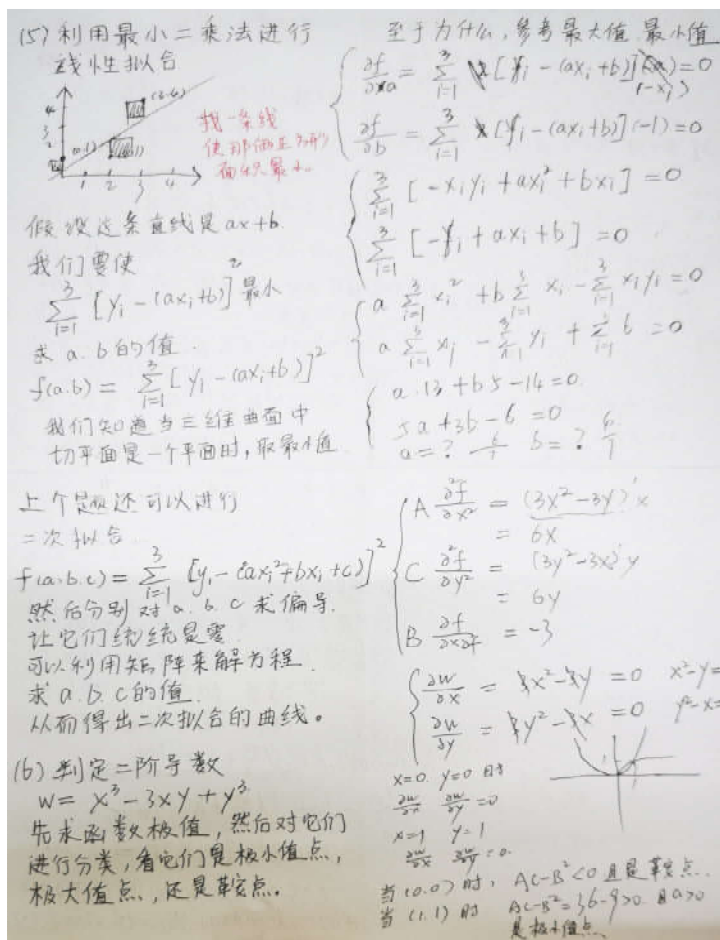 (5) 利用最小二乘法进行
线性拟合
4
3
2
1 2 3 4
(0,1)
(2,1)
(3,4)
找一条线
使那个正方形
面积最小
假设这条直线是 ax+b.
我们要使
∑_{i=1}^{3} [y_i - (ax_i+b)]^2 最小
求 a.b 的值.
f(a.b) = ∑_{i=1}^{3} [y_i - (ax_i+b)]^2
我们知道当三维曲面中
切平面是一个平面时,取最小值
上个题还可以进行
二次拟合
f(a.b.c) = ∑_{i=1}^{3} [y_i - (ax_i^2+bx_i+c)]^2
然后分别对 a.b.c 求偏导.
让它们统统是零
可以利用矩阵来解方程.
求 a.b.c 的值.
从而得出二次拟合的曲线。
(6) 判定二阶导数
W = x^3 - 3xy + y^3
先求函数极值,然后对它们
进行分类,看它们是极小值点,
极大值点,还是鞍点.
至于为什么,参考最大值.最小值
∂f/∂a = ∑_{i=1}^{3} [y_i - (ax_i+b)](-x_i) = 0
∂f/∂b = ∑_{i=1}^{3} [y_i - (ax_i+b)](-1) = 0
∑_{i=1}^{3} [-x_i y_i + ax_i^2 + bx_i] = 0
∑_{i=1}^{3} [-y_i + ax_i + b] = 0
a ∑_{i=1}^{3} x_i^2 + b ∑_{i=1}^{3} x_i - ∑_{i=1}^{3} x_i y_i = 0
a ∑_{i=1}^{3} x_i - ∑_{i=1}^{3} y_i + ∑_{i=1} b = 0
a.13 + b5 - 14 = 0.
5a + 3b - 6 = 0
a = ? b = ?
A ∂^2f/∂x^2 = (3x^2-3y)'x
= 6x
C ∂^2f/∂y^2 = (3y^2-3x)'y
= 6y
B ∂f/∂x∂y = -3
∂w/∂x = 3x^2-3y = 0 x^2-y=
∂w/∂y = 3y^2-3x = 0 y^2-x=
x=0 y=0 时
∂w/∂x ∂w/∂y =0
x=1 y=1
∂w/∂x ∂w/∂y =0.
当 (0.0) 时, AC-B^2<0 且是鞍点.
当 (1.1) 时 AC-B^2=36-9>0. 且a>0
是极小值点